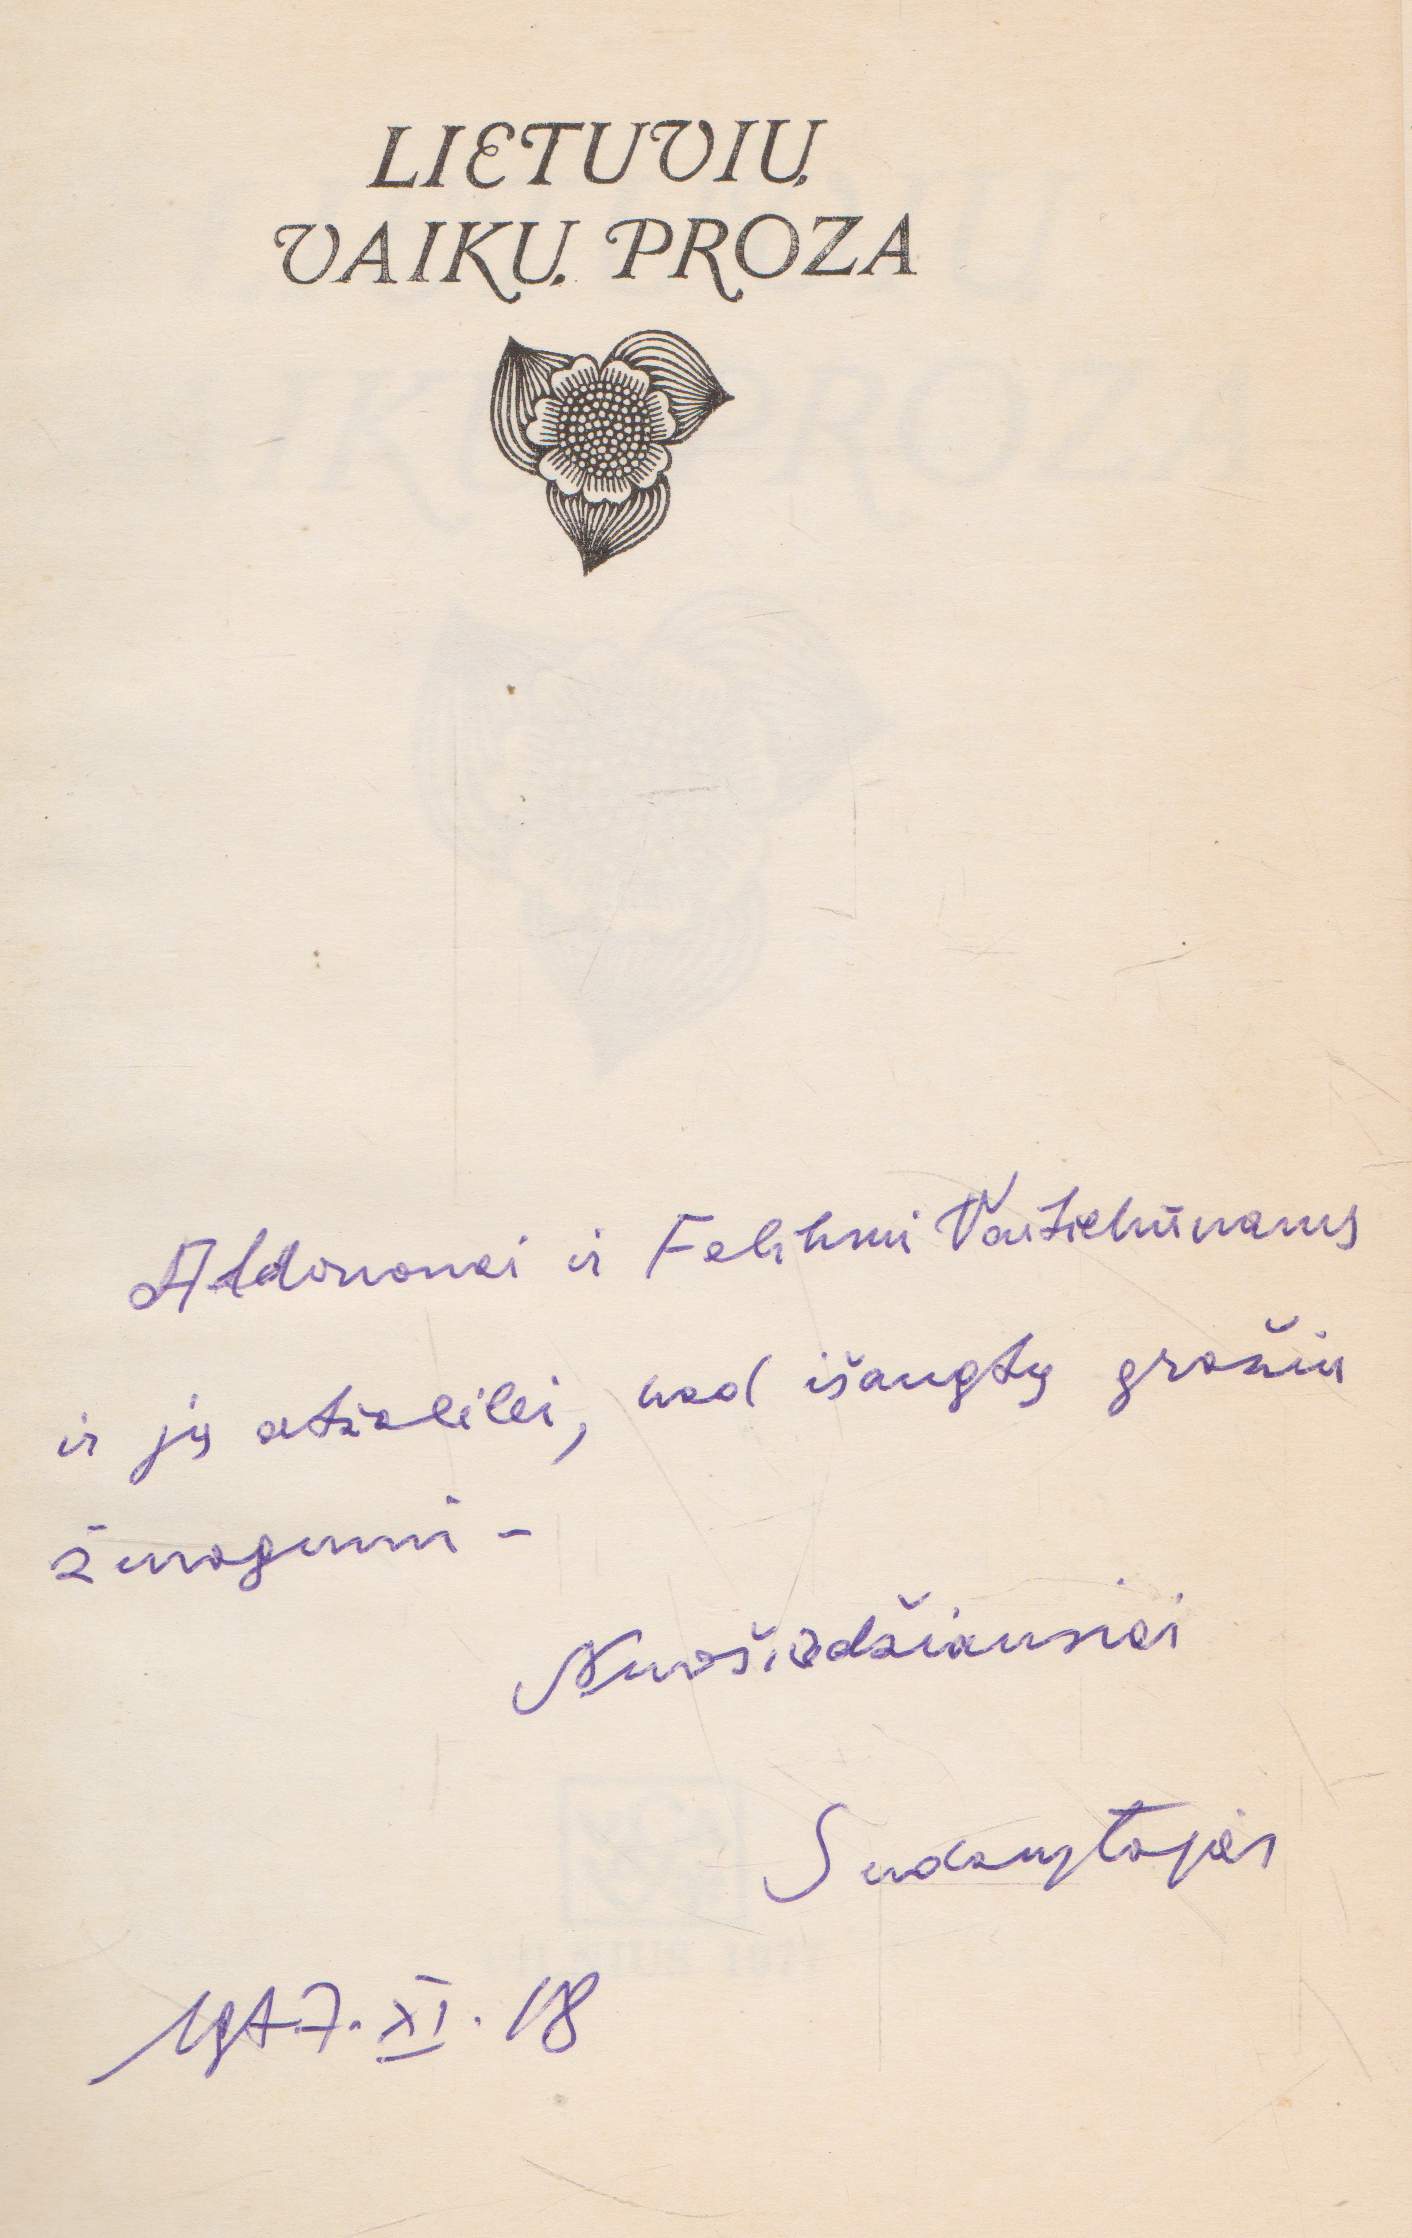 LIETUVIŲ
VAIKŲ PROZA
Aldonai ir Feliksui Vaitiekūnams
ir jų atžalilei, kad išaugtų gražiu
žmogumi –
Nuoširdžiausiai
Sudarytojas
1977.XI.18
VILNIUS 1977